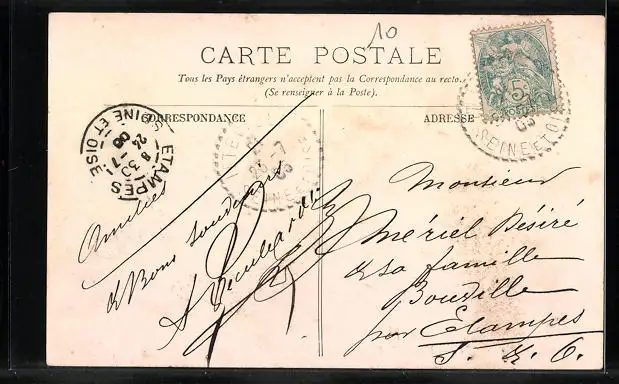 10
CARTE POSTALE
Tous les Pays étrangers n'acceptent pas la Correspondance au recto...
(Se renseigner à la Poste).
CORRESPONDANCE
ADRESSE
5
ETAMPES
8 35
26 -7
06
SEINE ET OISE
SEINE ET OISE
Amitiés
& Bons souvenirs
Monsieur
Mériel Désiré
& sa famille
Bouville
par Etampes
S. & O.